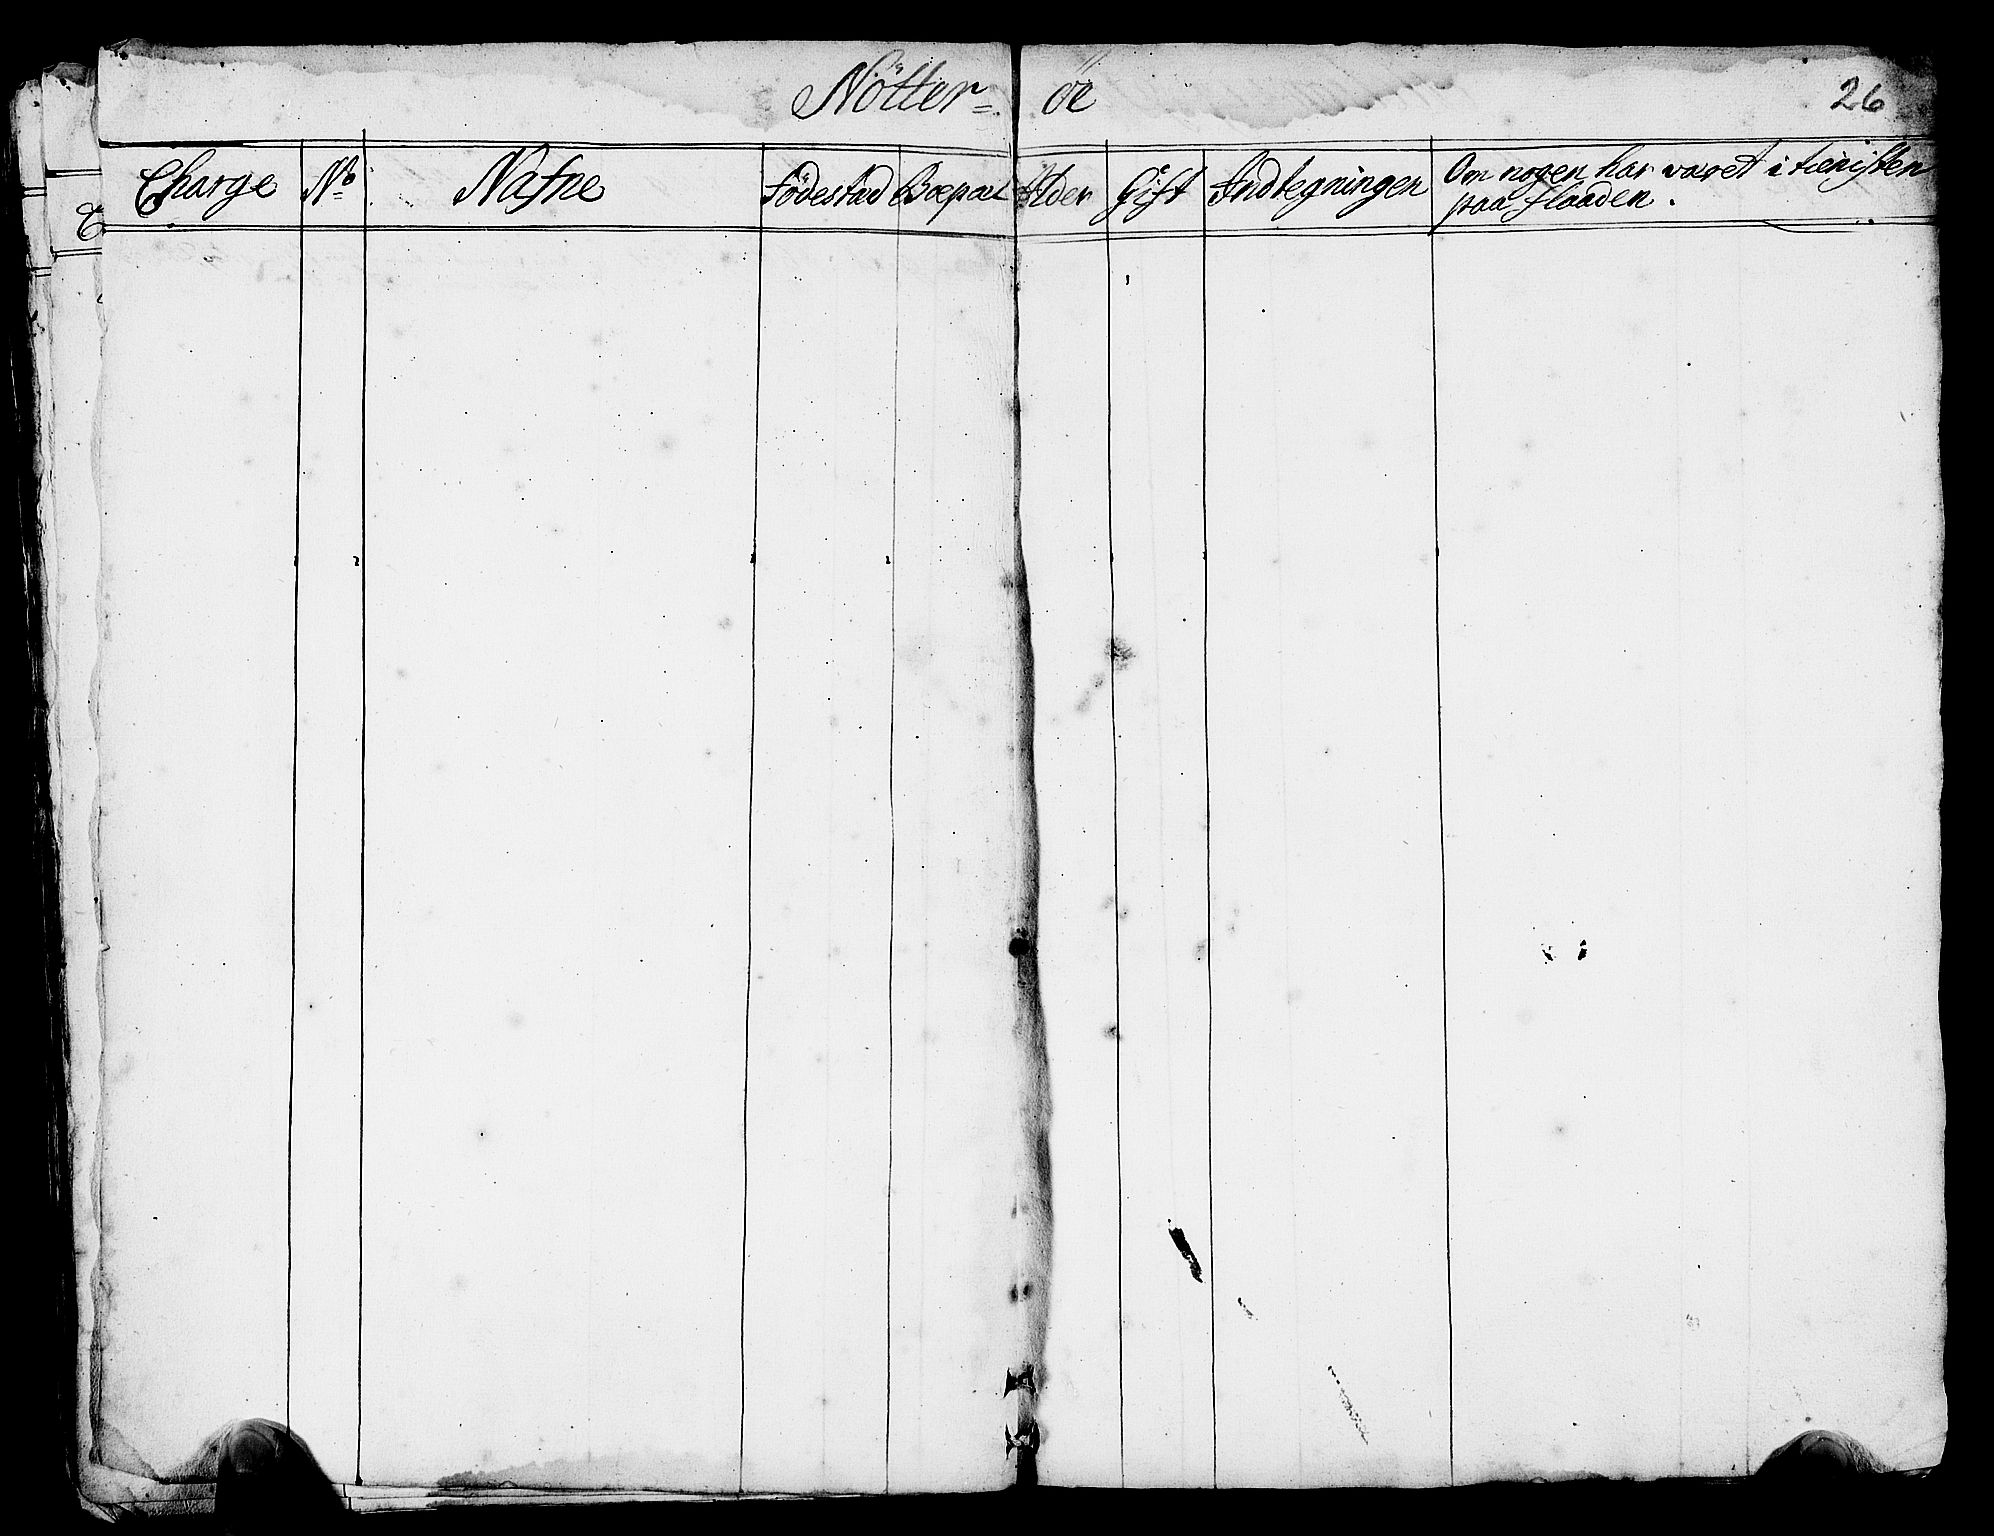 Nötter= öe
26
Charge No Nafne Födestæd Boepæl Alder Gift Indtegningen Om nogen har været i tienisten
paa flaaden.